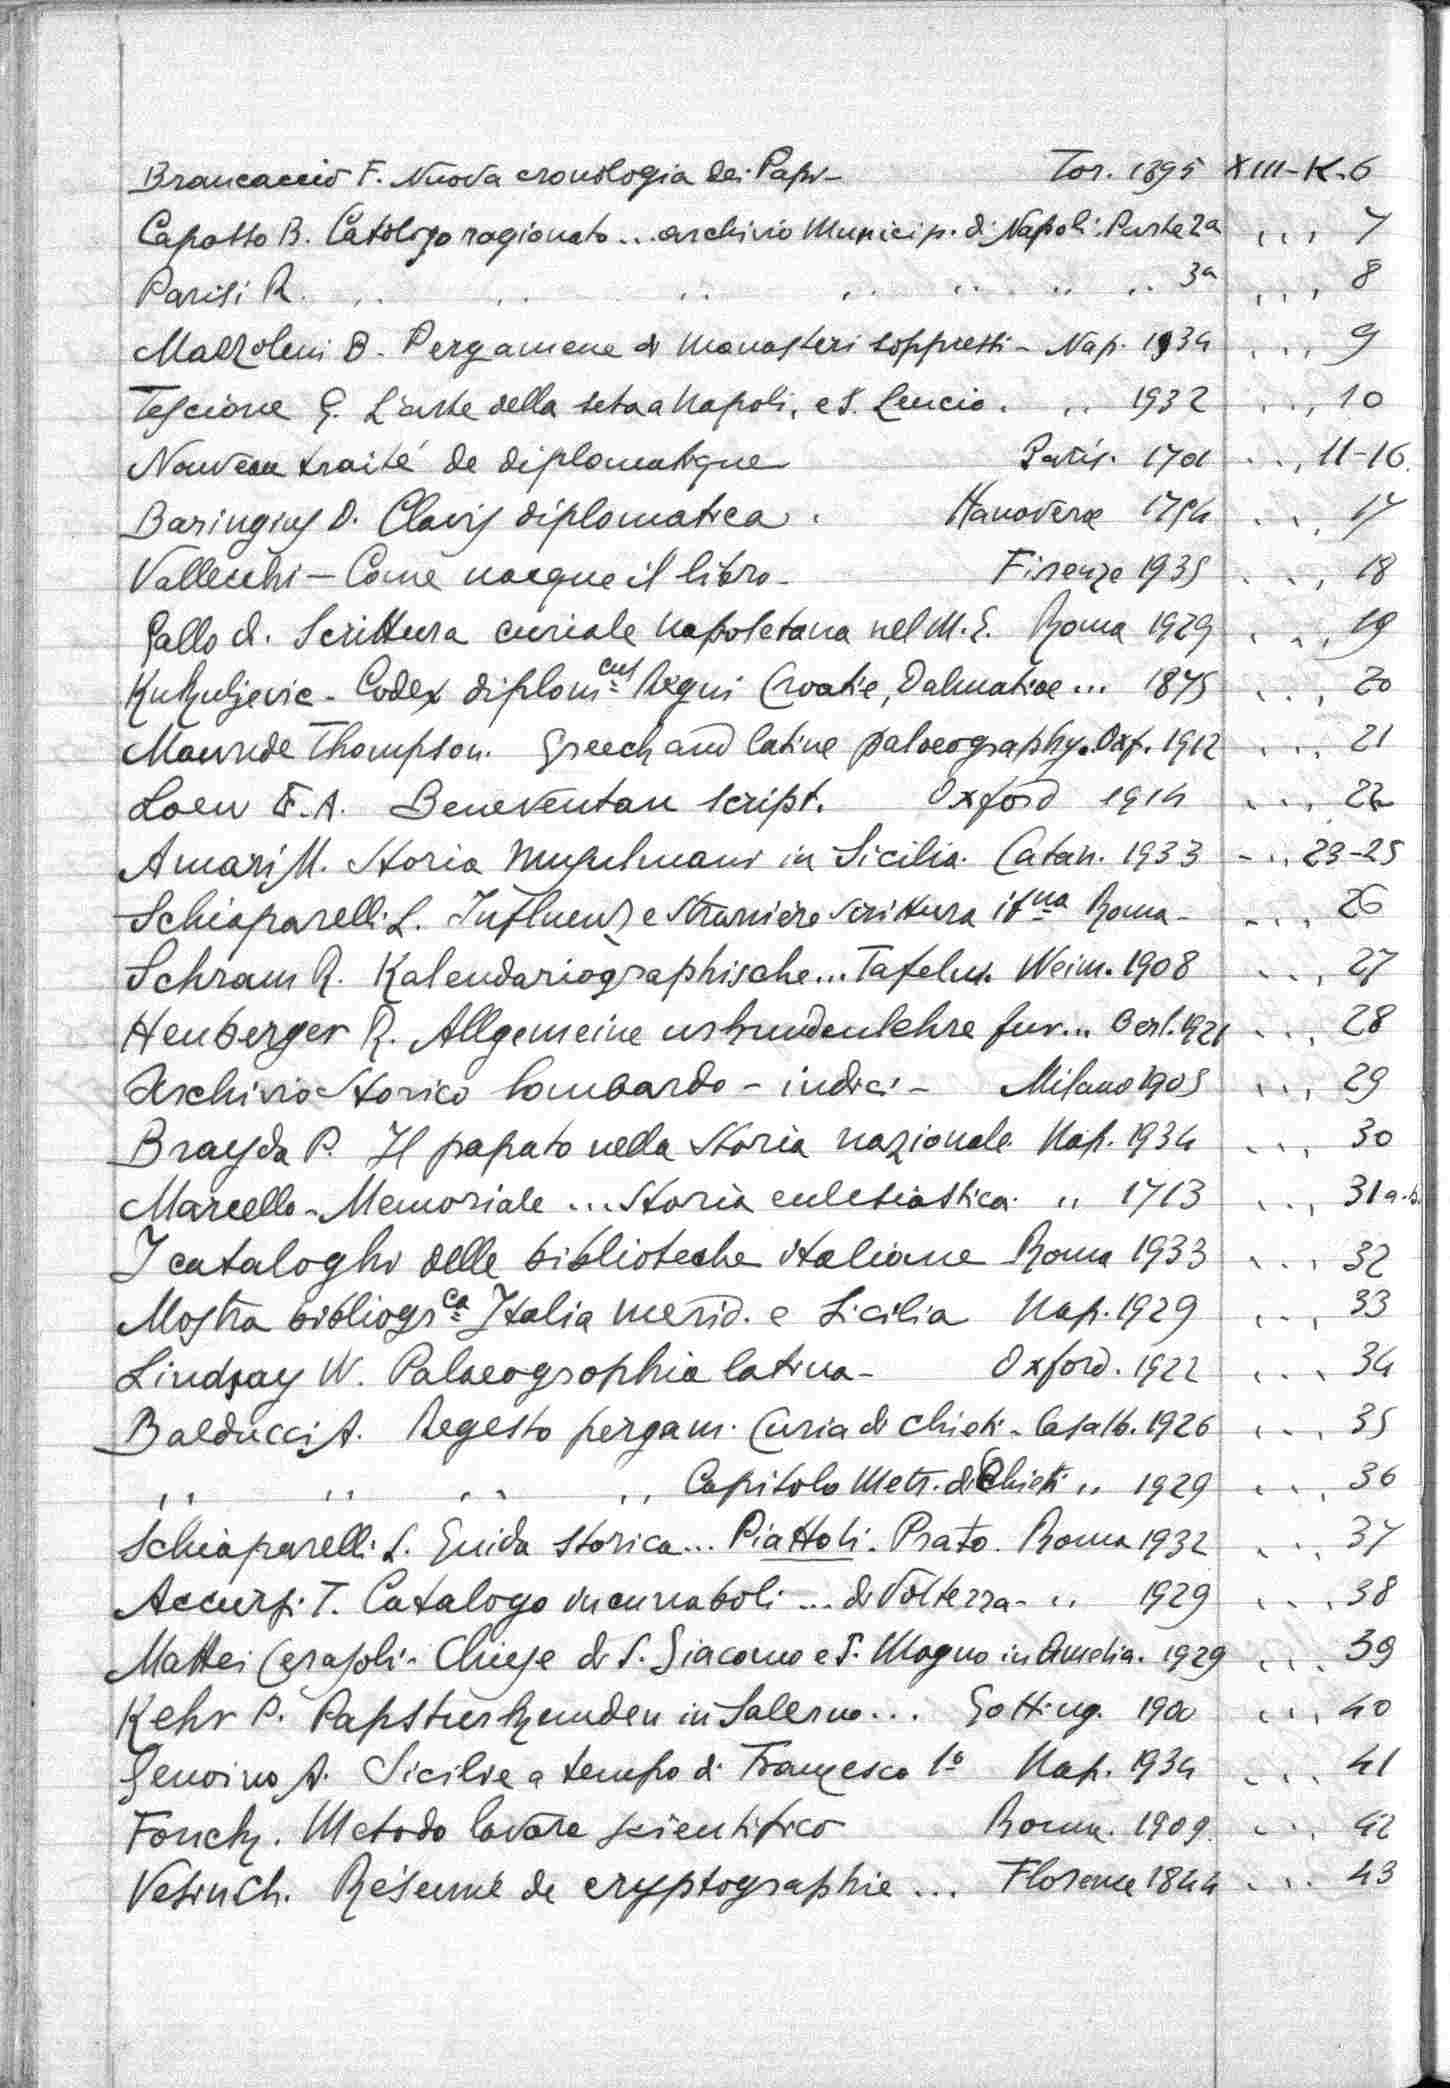 Brancaccio F. Nuova cronologia dei Papi - Tor. 1895 XIII-K-6
Capasso B. Catologo ragionato... archivio Municip. di Napoli. Parte 2a ,,, 7
Parisi R. ,, ,, ,, ,, ,, ,, ,, 3a ,,, 8
Mazzoleni B. Pergamene di Monasteri soppressi - Nap. 1934 ,,, 9
Tescione G. L'arte della seta a Napoli, e S. Leucio. ,, 1932 ,,, 10
Nouveau traité de diplomatique Paris. ,,, 11-16.
Baringius D. Clavis diplomatica. Hanoverae 1754 ,,, 17
Vallecchi - Come nacque il libro - Firenze 1935 ,,, 18
Gallo A. Scrittura curiale napoletana nel M. E. Roma 1929 ,,, 19
Kukuljevic - Codex diplomcus Regni Croatie, Dalmatiae... 1875 ,,, 20
Maunde Thompson. Greech and latine palaeography. Oxf. 1912 ,,, 21
Loew E. A. Beneventan script. Oxford 1914 ,,, 22
Amari M. Storia Musulmani in Sicilia. Catan. 1933 - ,, 23-25
Schiaparelli L. Influenze straniere scrittura itna Roma - ,,, 26
Schram R. Kalendariographische... Tafeln. Weim. 1908 ,,, 27
Heuberger R. Allgemeine urkundenlehre fur... Berl. 1921 ,,, 28
Archivio Storico lombardo - indici - Milano 1905 ,,, 29
Brayda P. Il papato nella Storia nazionale. Nap. 1934 ,,, 30
Marcello - Memoriale ... Storia eclesiastica. ,, 1713 ,,, 31a-b.
I cataloghi delle biblioteche italiane Roma 1933 ,,, 32
Mostra bibliogrca Italia merid. e Sicilia Nap. 1929 ,,, 33
Lindsay W. Palaeographia latina - Oxford. 1922 ,,, 34
Balducci A. Regesto pergam. Curia di Chieti - Casalb. 1926 ,,, 35
,, ,, ,, ,, Capitolo Metr. di Chieti ,, 1929 ,,, 36
Schiaparelli L. Guida storica... Piattoli. Prato. Roma 1932 ,,, 37
Accursi T. Catalogo incunaboli ... di Volterra - ,, 1929 ,,, 38
Mattei Cerasoli - Chiese di S. Giacomo e S. Magno in Amelia. 1929 ,,, 39
Kehr P. Papsturkunden in Salerno... Gotting. 1900 ,,, 40
Genoino A. Sicilie a tempo di Francesco 1o Nap. 1934 ,,, 41
Fonck. Metodo lavoro scientifico Roma. 1909. ,,, 42
Vesin Ch. Résumé de cryptographie... Florence 1844 ,,, 43